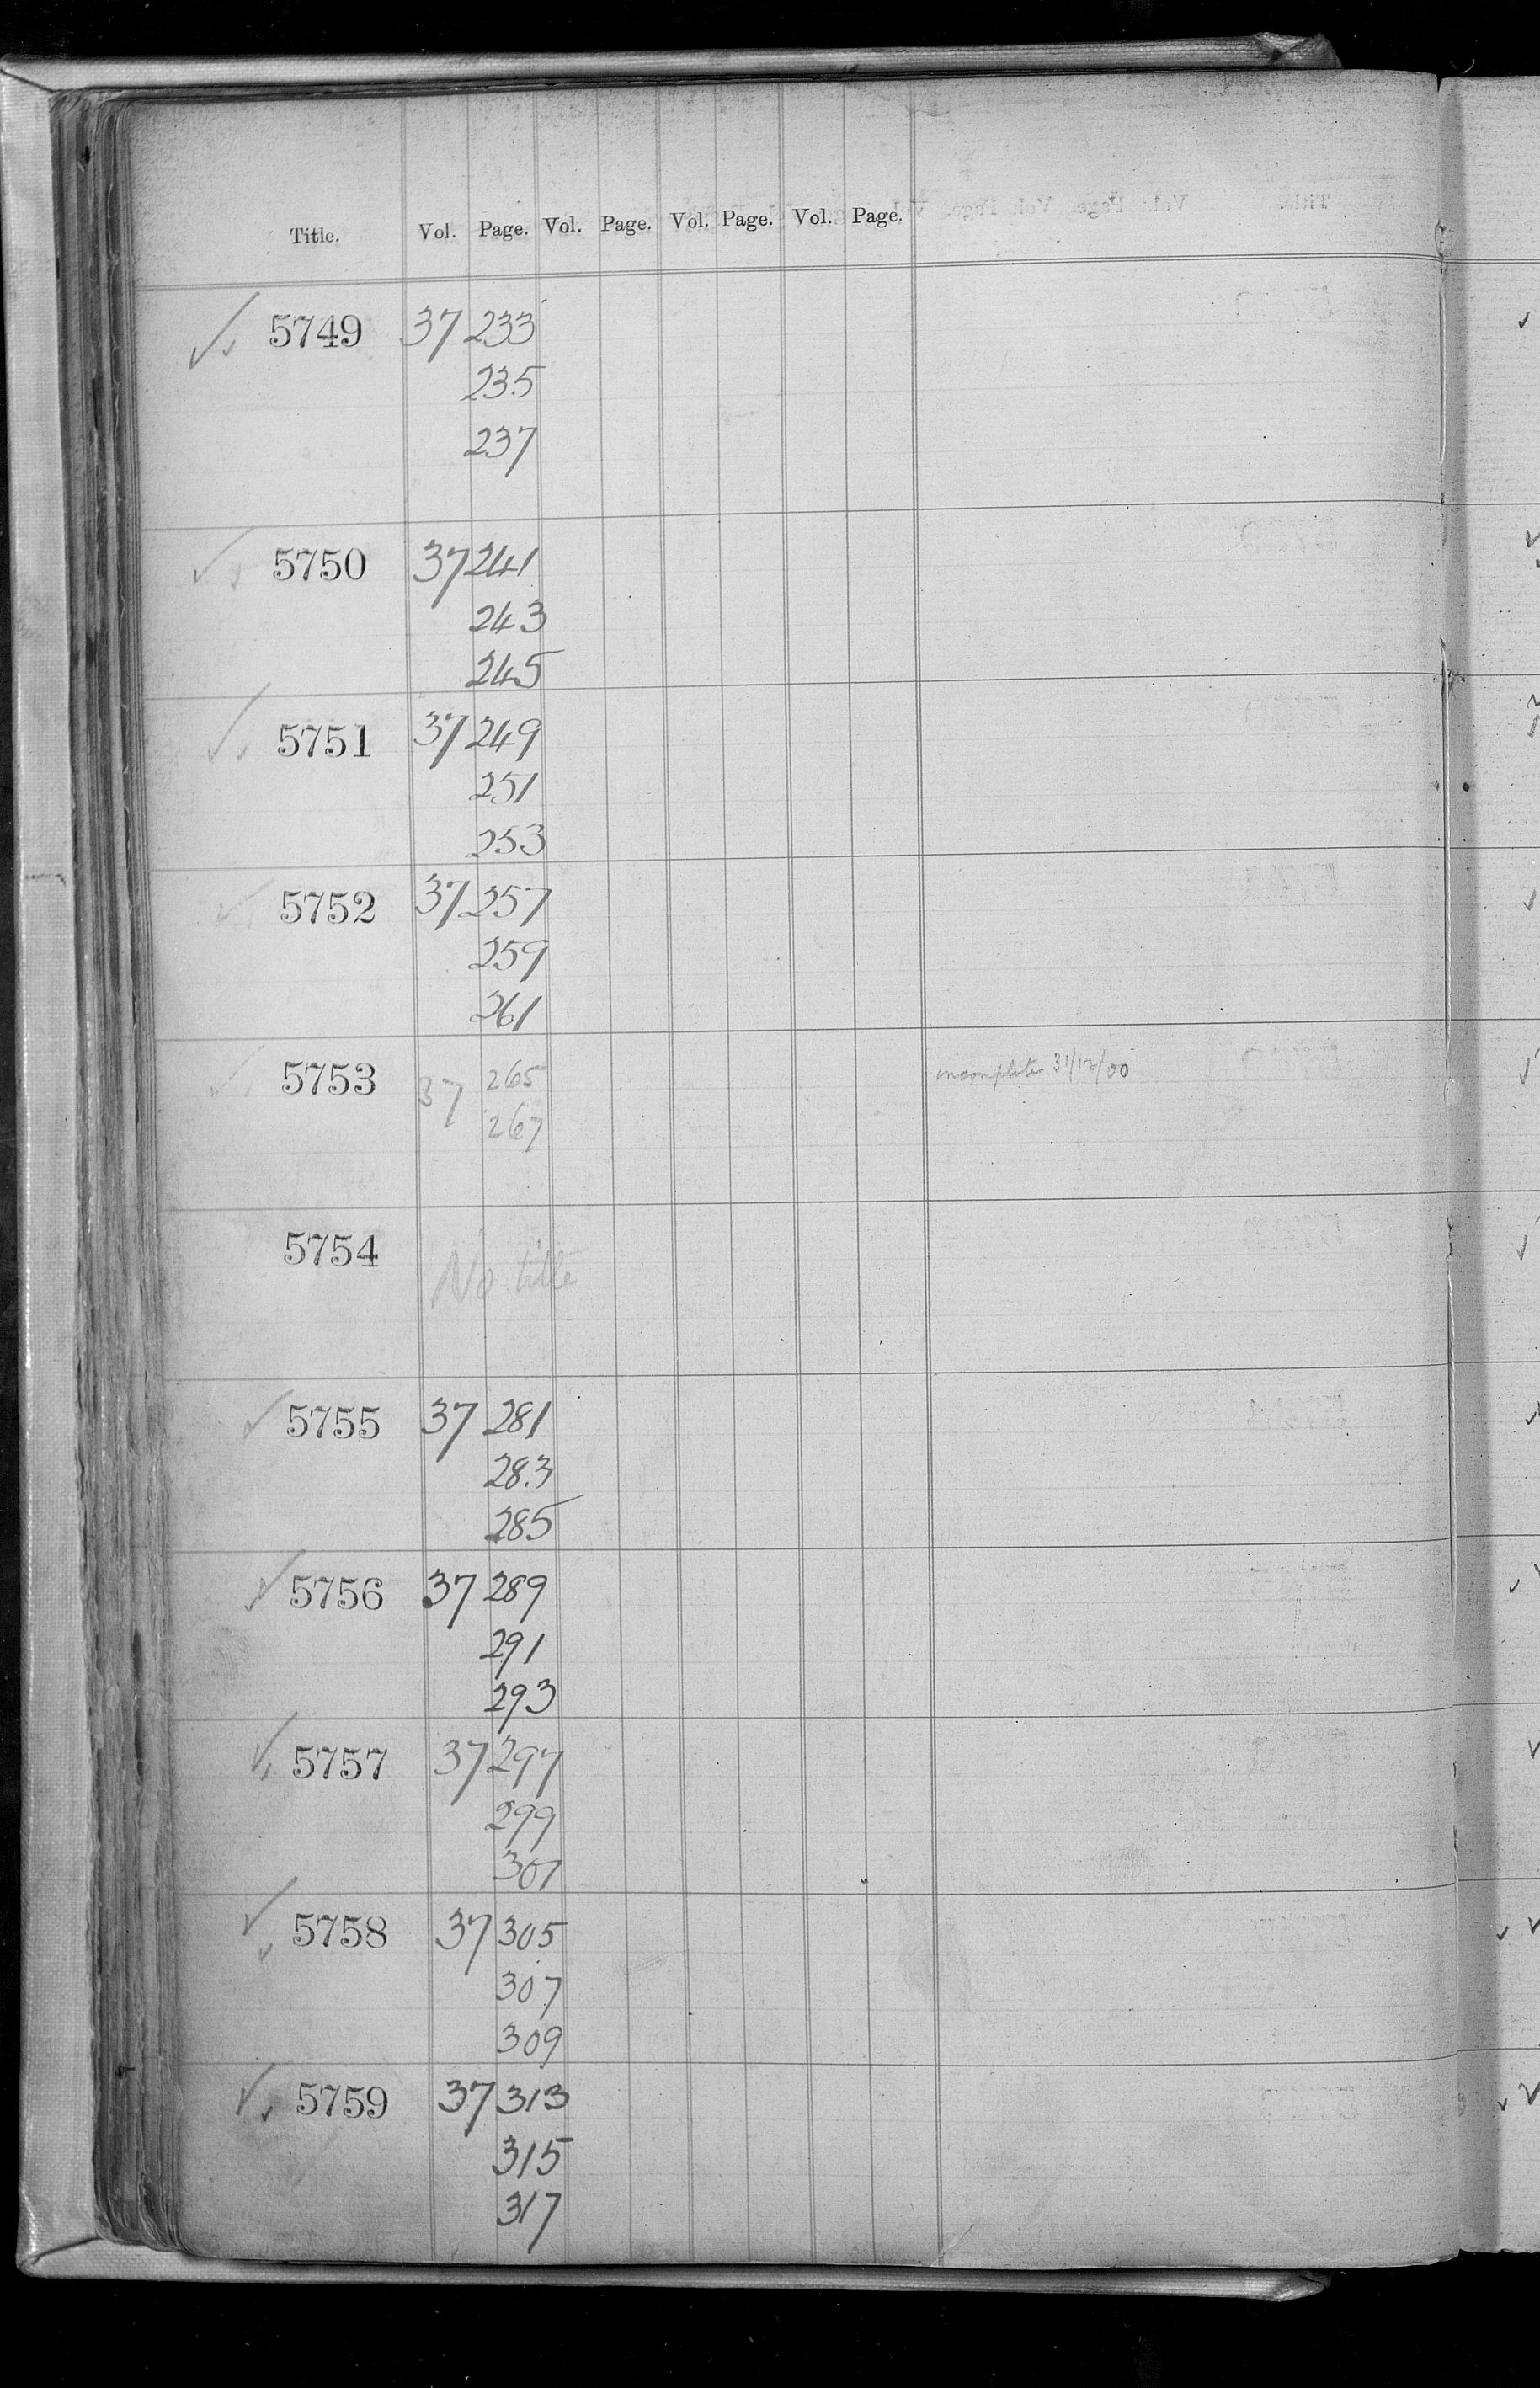 Title. Vol. Page. Vol. Page. Vol. Page. Vol. Page.
5749 37 233
235
237
5750 37 241
243
245
5751 37 249
251
253
5752 37 257
259
261
5753 37 265 incomplete 31/12/00
267
5754 No title
5755 37 281
283
285
5756 37 289
291
293
5757 37 297
299
301
5758 37 305
307
309
5759 37 313
315
317